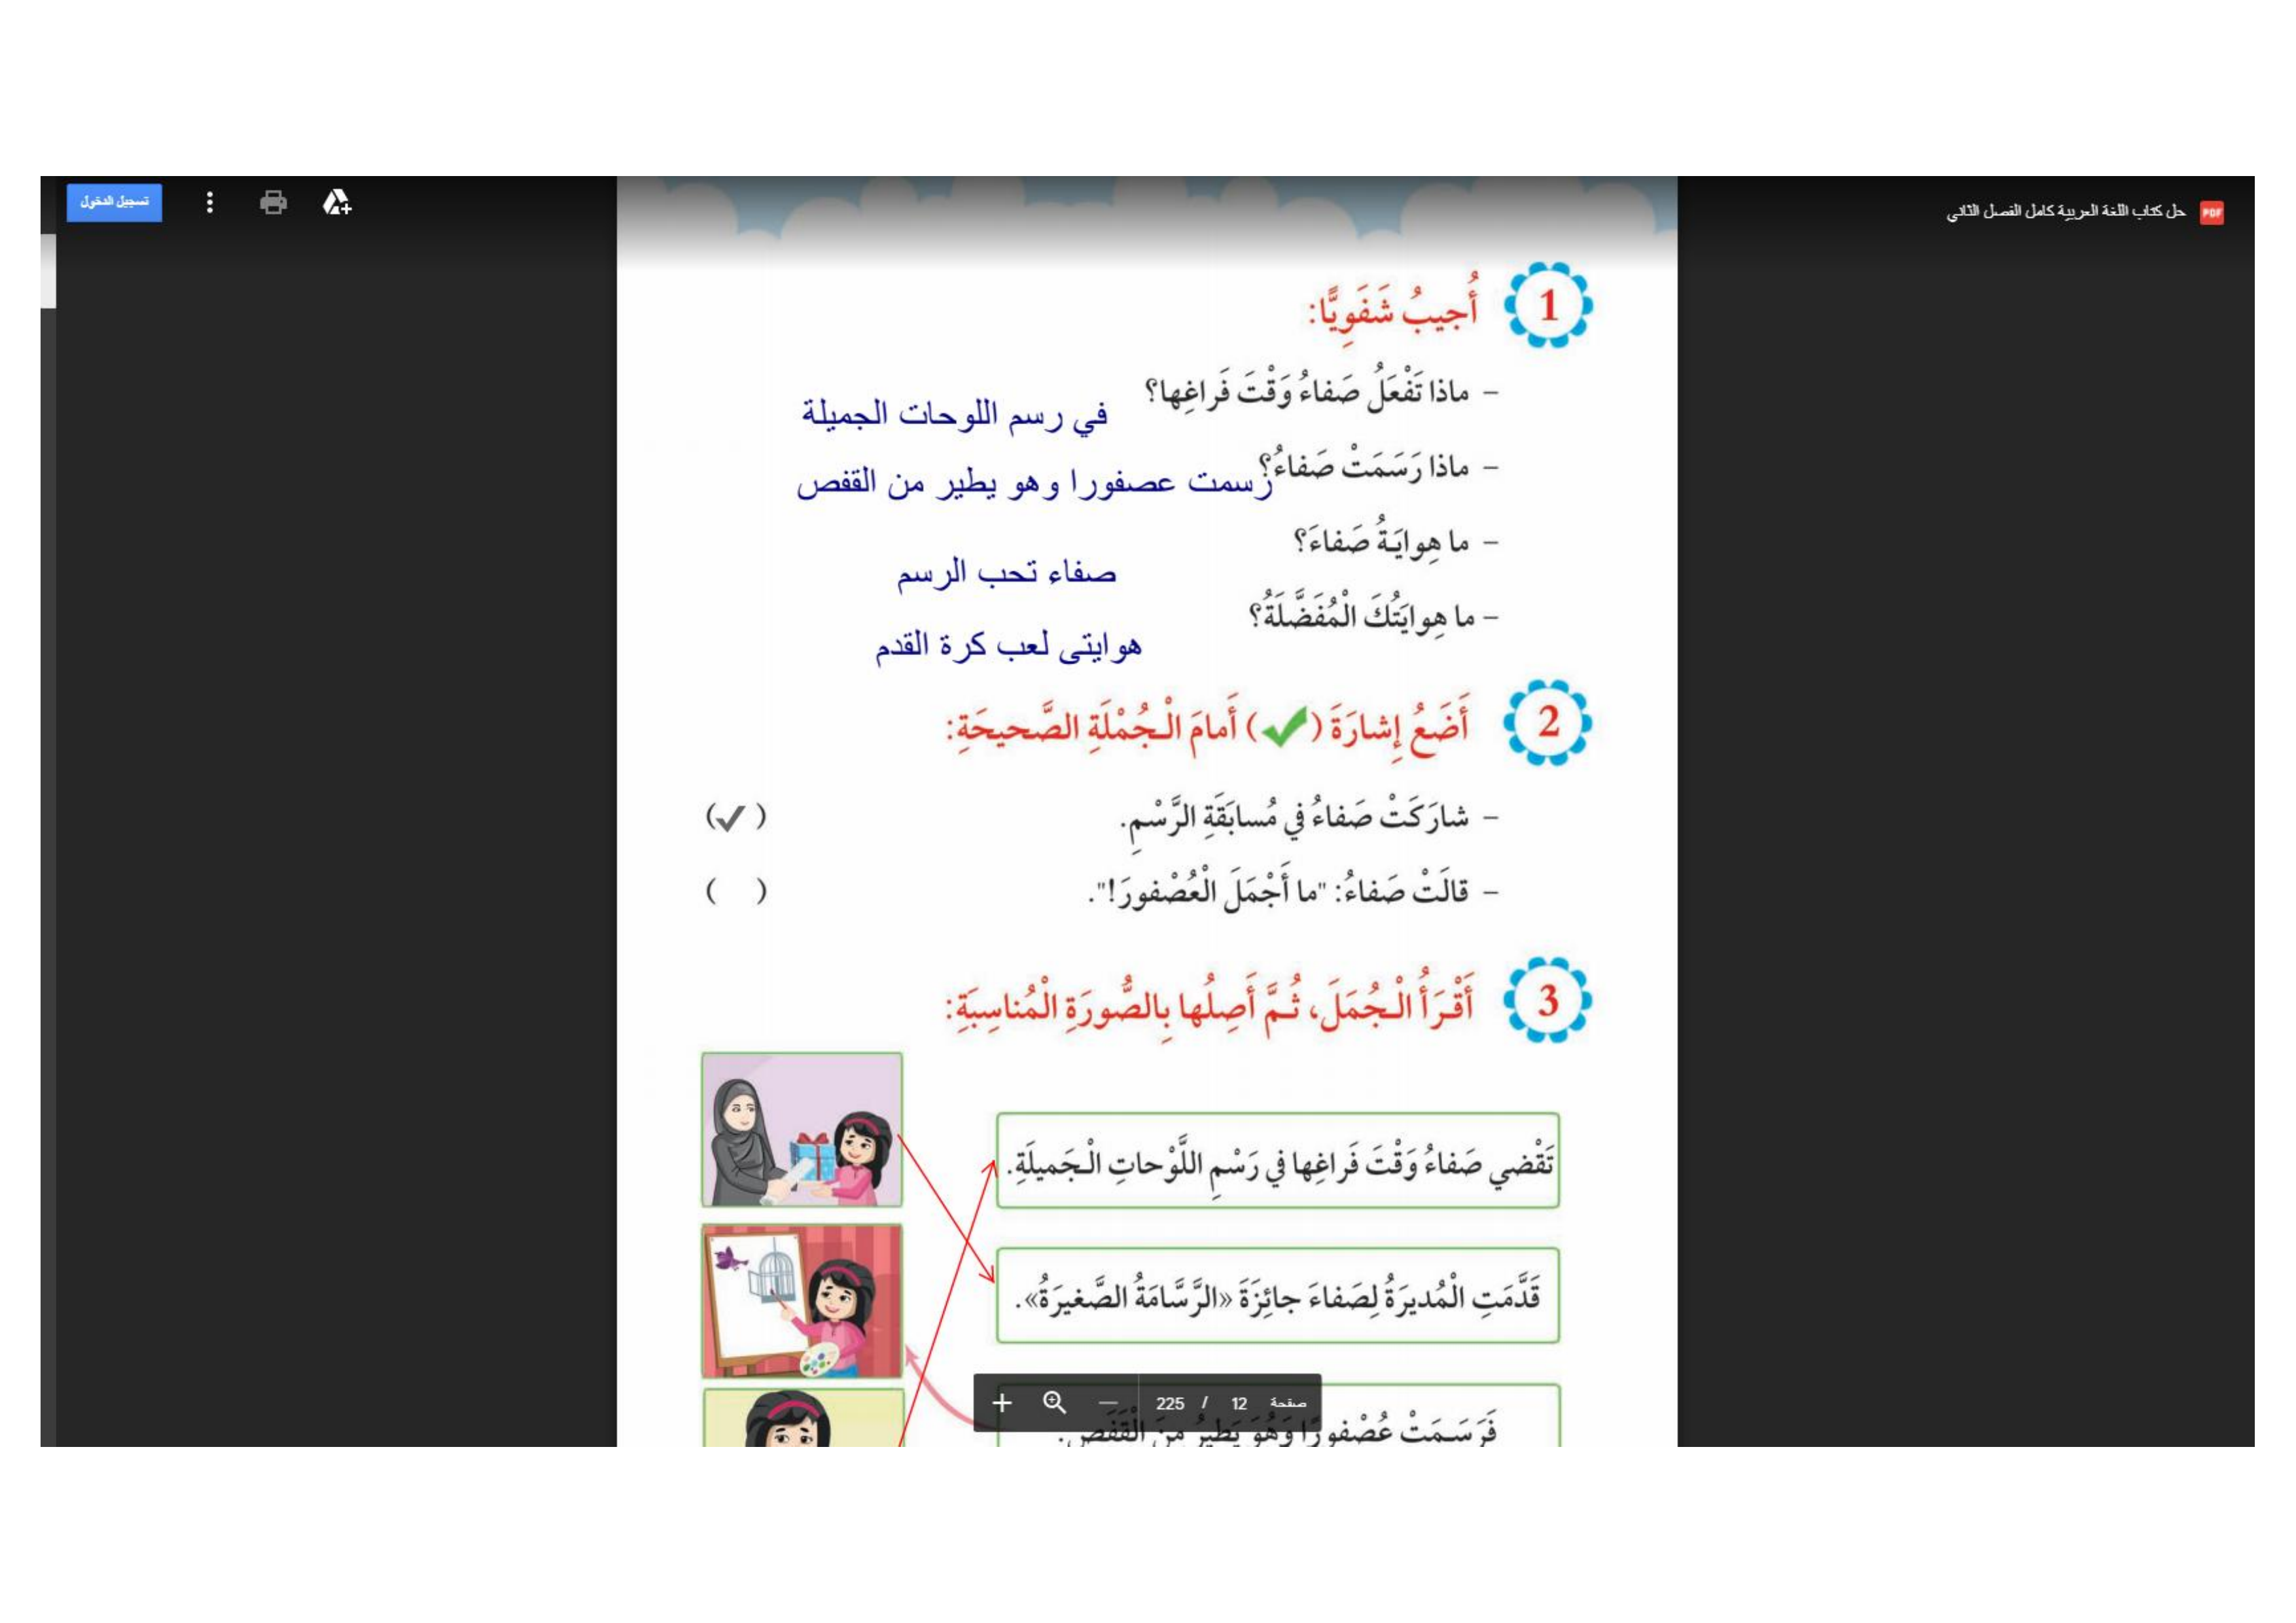 حل كتاب اللغة العربية كامل الفصل الثاني
PDF
تسجيل الدخول
1 أُجيبُ شَفَوِيًّا:
– ماذا تَفْعَلُ صَفاءُ وَقْتَ فَراغِها؟
في رسم اللوحات الجميلة
– ماذا رَسَمَتْ صَفاءُ؟
رسمت عصفورا وهو يطير من القفص
– ما هِوايَةُ صَفاءَ؟
صفاء تحب الرسم
– ما هِوايَتُكَ الْمُفَضَّلَةُ؟
هوايتى لعب كرة القدم
2 أَضَعُ إِشارَةَ (✓) أَمامَ الْجُمْلَةِ الصَّحيحَةِ:
– شارَكَتْ صَفاءُ في مُسابَقَةِ الرَّسْمِ. (✓)
– قالَتْ صَفاءُ: "ما أَجْمَلَ الْعُصْفورَ!". ( )
3 أَقْرَأُ الْجُمَلَ، ثُمَّ أَصِلُها بِالصُّورَةِ الْمُناسِبَةِ:
تَقْضي صَفاءُ وَقْتَ فَراغِها في رَسْمِ اللَّوْحاتِ الْجَميلَةِ.
قَدَّمَتِ الْمُديرَةُ لِصَفاءَ جائِزَةَ «الرَّسَّامَةُ الصَّغيرَةُ».
صفحة 12 / 225
فَرَسَمَتْ عُصْفورًا وَهُوَ يَطيرُ مِنَ الْقَفَصِ.